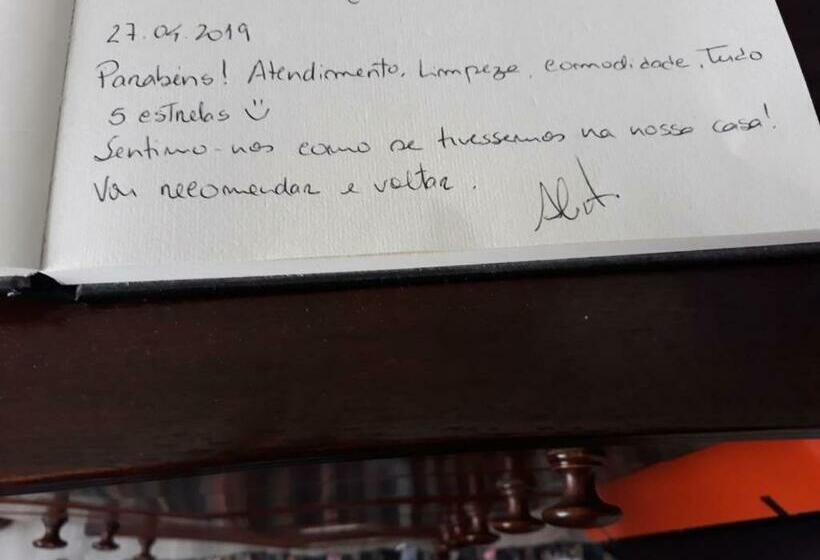 27.04.2019
Parabéns! Atendimento, Limpeza, comodidade, Tudo
5 estrelas
Sentimo-nos como se tivessemos na nossa casa!
Vou recomendar e voltar.